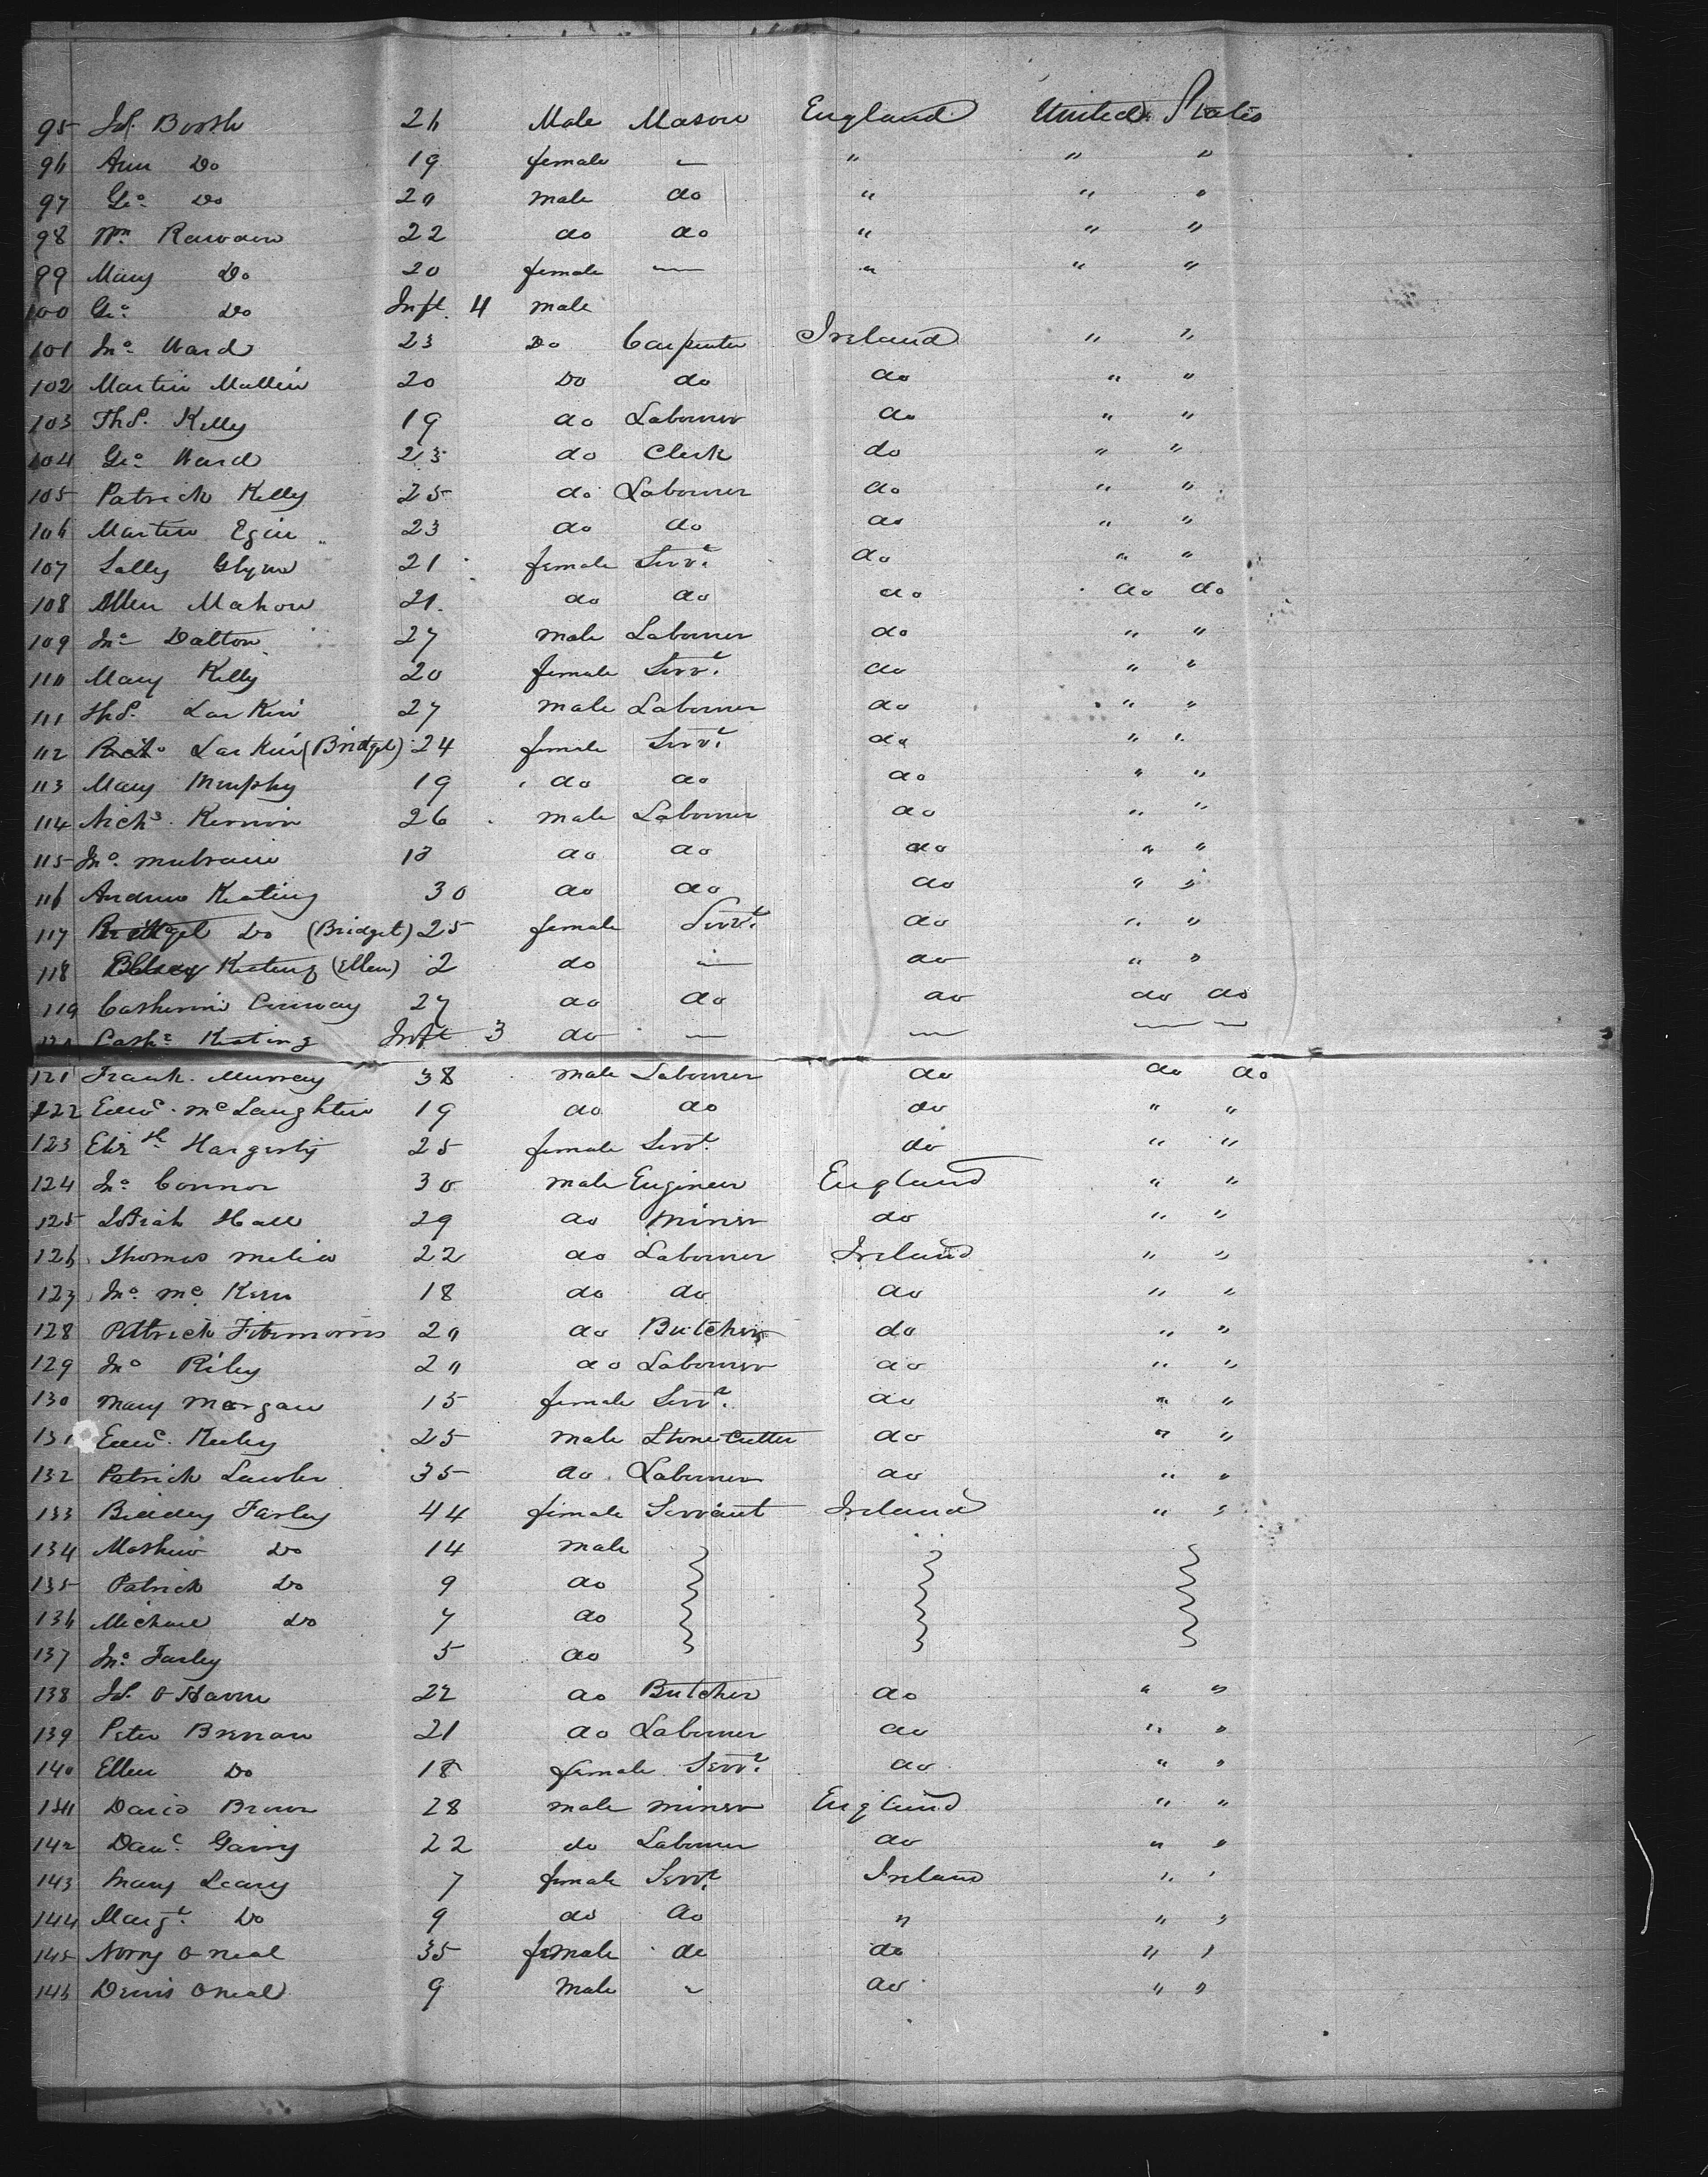 95 Js. Booth 26 Male Mason England United States
96 Ann Do 19 female — " " "
97 Geo. Do 20 male do " " "
98 Wm. Rawden 22 do do " " "
99 Mary Do 20 female — " " "
100 Geo. Do Inft. 4 male
101 Jno. Ward 23 Do Carpenter Ireland " "
102 Martin Mullin 20 Do do do " "
103 Ths. Kelly 19 do Labourer do " "
104 Geo. Ward 23 do Clerk do " "
105 Patrick Kelly 25 do Labourer do " "
106 Martin Egin 23 do do do " "
107 Sally Glynn 21 female Servt. do " "
108 Ellen Mahon 21 do do do do do
109 Jno. Dalton 27 male Labourer do " "
110 Mary Kelly 20 female Servt. do " "
111 Ths. Larkin 27 male Labourer do " "
112 Larkin (Bridget) 24 female Servt. do " "
113 Mary Murphy 19 do do do " "
114 Nichs. Kernin 26 male Labourer do " "
115 Jno. 18 do do do " "
116 Andrew Keating 30 do do do " "
117 Do (Bridget) 25 female Servt. do " "
118 Keating (Ellen) 2 do — do " "
119 Catherine Conway 27 do do do do do
120 Cathe. Keating Inft 3 do — — — —
121 Frank. Murray 38 male Labourer do do do
122 Edwd. McLaughlin 19 do do do " "
123 Elizth. Hargerty 25 female Servt. do " "
124 Jno. Connor 30 male Engineer England " "
125 Hall 29 do miner do " "
126 Thomas melia 22 do Labourer Ireland " "
127 Jno. Mc Kern 18 do do do " "
128 Patrick Fitzmorris 20 do Butcher do " "
129 Jno Riley 20 do Labourer do " "
130 Mary Morgan 15 female Servt. do " "
131 Edwd. Keeley 25 male Stone Cutter do " "
132 Patrick Lawler 35 do Labourer do " "
133 Biddey Farley 44 female Servant Ireland " "
134 Mathew Do 14 male
135 Patrick Do 9 do
136 Michael Do 7 do
137 Jno. Farley 5 do
138 Js. O Havre 22 do Butcher do " "
139 Peter Brenan 21 do Labourer do " "
140 Ellen Do 18 female Servt. do " "
141 David Brown 28 male miner England " "
142 Danl. Gairy 22 do Labourer do " "
143 Mary Leary 7 female Servt. Ireland " "
144 Margt. Do 9 do do " " "
145 Norry O neal 35 female do do " "
146 Denis O neal 9 Male " do " "